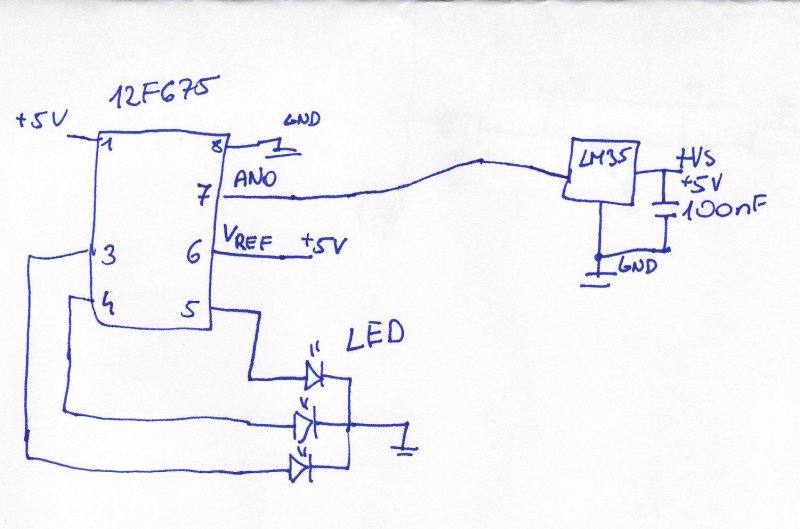 12F675
+5V
1
8
GND
7
AN0
3
6
VREF
+5V
4
5
LED
LM35
+VS
+5V
100nF
GND